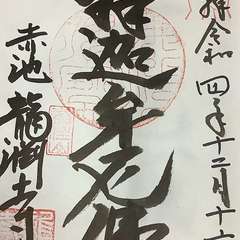 拝 令和四年十二月十
釋迦牟尼佛
赤池 龍潤寺